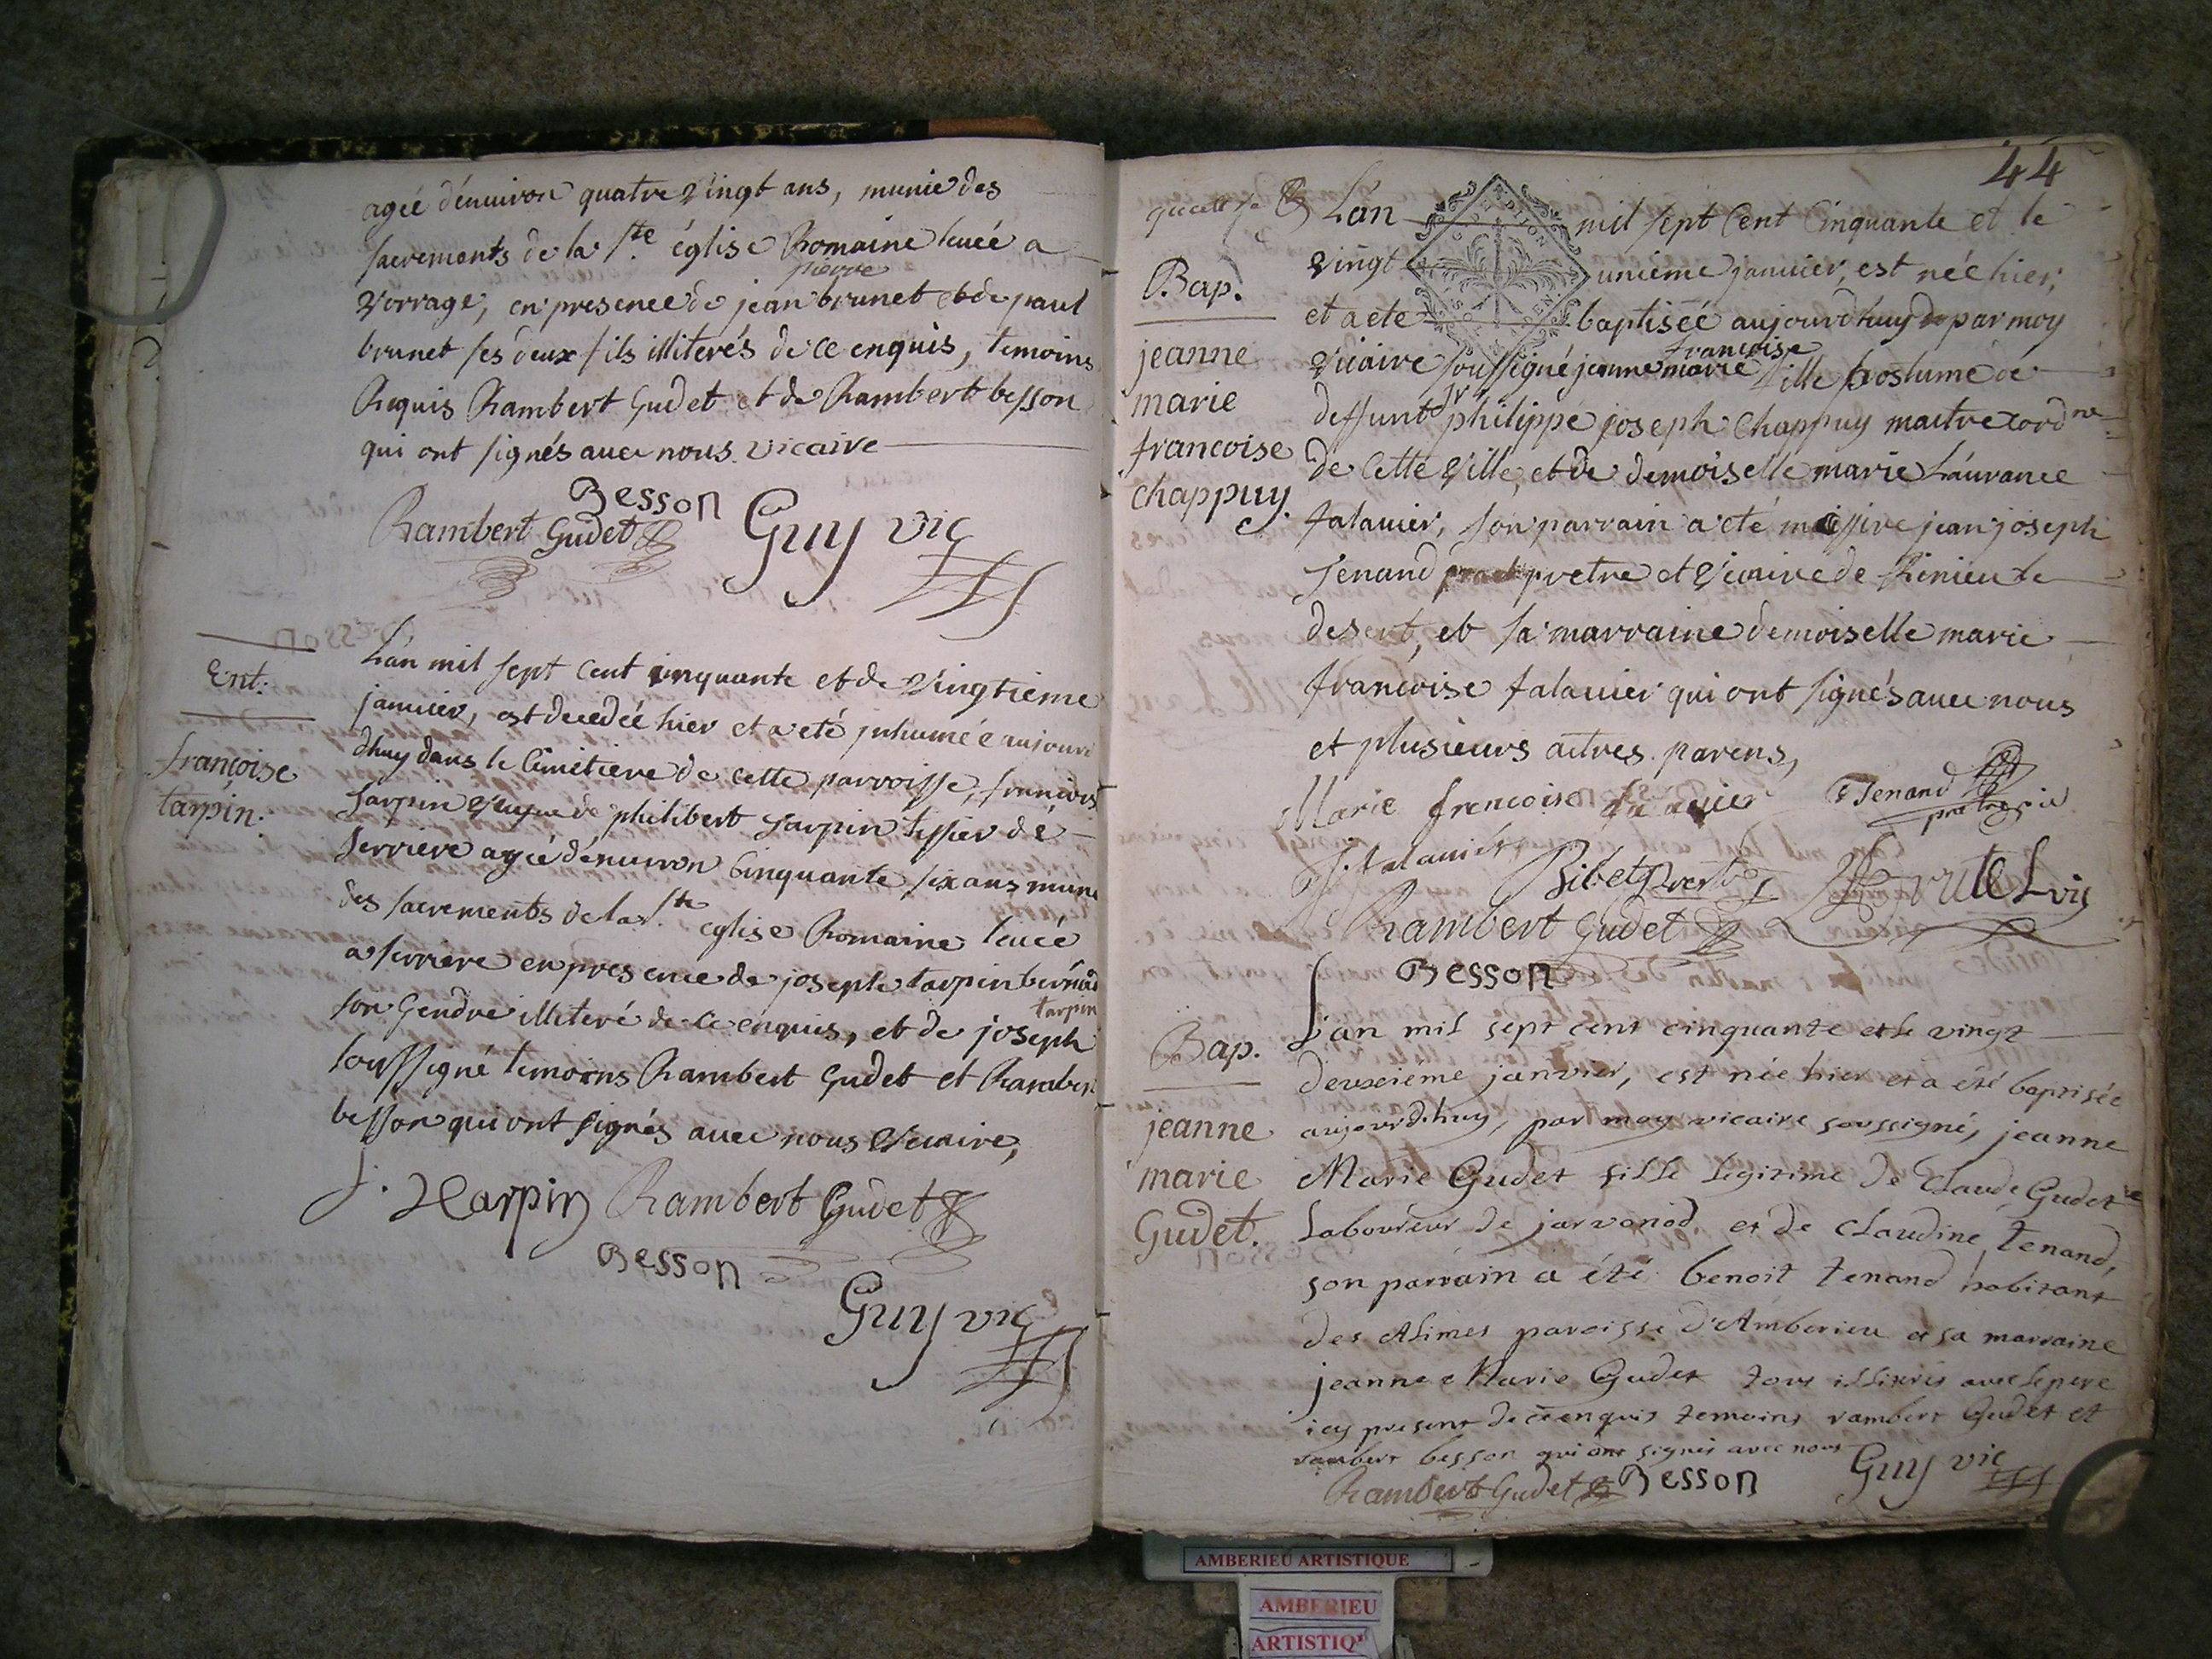 agée d'enuiron quatre vingt ans, munie des
sacrements de la Ste. église Romaine leuée a
pierre
Vorrage, en presence de jean brunet et de paul
brunet ses deux fils illiterés de ce enquis, temoins
Requis Rambert Gudet et de Rambert besson
qui ont signés auec nous vicaire
Besson
Rambert Gudet Guy vic
Ent:
françoise
tarpin.
L'an mil sept cent cinquante et de vingtième
januier, est decedée hier et a eté inhumée aujour
dhuy dans le Cimetiere de cette parroisse, francoise
tarpin de philibert tarpin tissier de
Serriere agée d'enuiron Cinquante six ans munie
des sacrements de la Ste. eglise Romaine leuée
a serriere en presence de joseph tarpin bernard
son Gendre illiteré de ce enquis, et de joseph
tarpin
soussigné temoins Rambert Gudet et Rambert
besson qui ont signés auec nous vicaire,
J. tarpin Rambert Gudet
Besson
Guy vic
44
L'an mil sept Cent Cinquante et le
vingt unieme januier, est née hier,
et a eté baptisée aujourdhuy par moy
francoise
vicaire soussigné jeanne marie fille postume de
deffunt sr philippe joseph Chappuy maitre cordnr
de Cette Ville, et de demoiselle marie Laurance
falauier, son parrain a eté messire jean joseph
tenand pretre et vicaire de le
desert, et sa marraine demoiselle marie
francoise falauier qui ont signés auec nous
et plusieurs autres parens,
Bap.
jeanne
marie
francoise
chappuy.
Marie francoise Tenand
pretre vic
falauier
Rambert Gudet
Besson
Bap.
jeanne
marie
Gudet.
L'an mil sept cent cinquante et le vingt
deuxeiéme janvier, est née hier et a été baptisée
aujourd'huy, par moy vicaire soussigné, jeanne
Marie Gudet fille legitime de Claude Gudet
laboureur de jarvonod, et de claudine tenand,
son parrain a été benoit tenand habitant
des Alimes paroisse d'Amberieu et sa marraine
jeanne Marie Gudet tous illitérés avec le pere
icy present de ce enquis temoins rambert Gudet et
rambert besson qui ont signés avec nous
Rambert Gudet Besson Guy vic
AMBERIEU ARTISTIQUE
AMBERIEU
ARTISTIQ